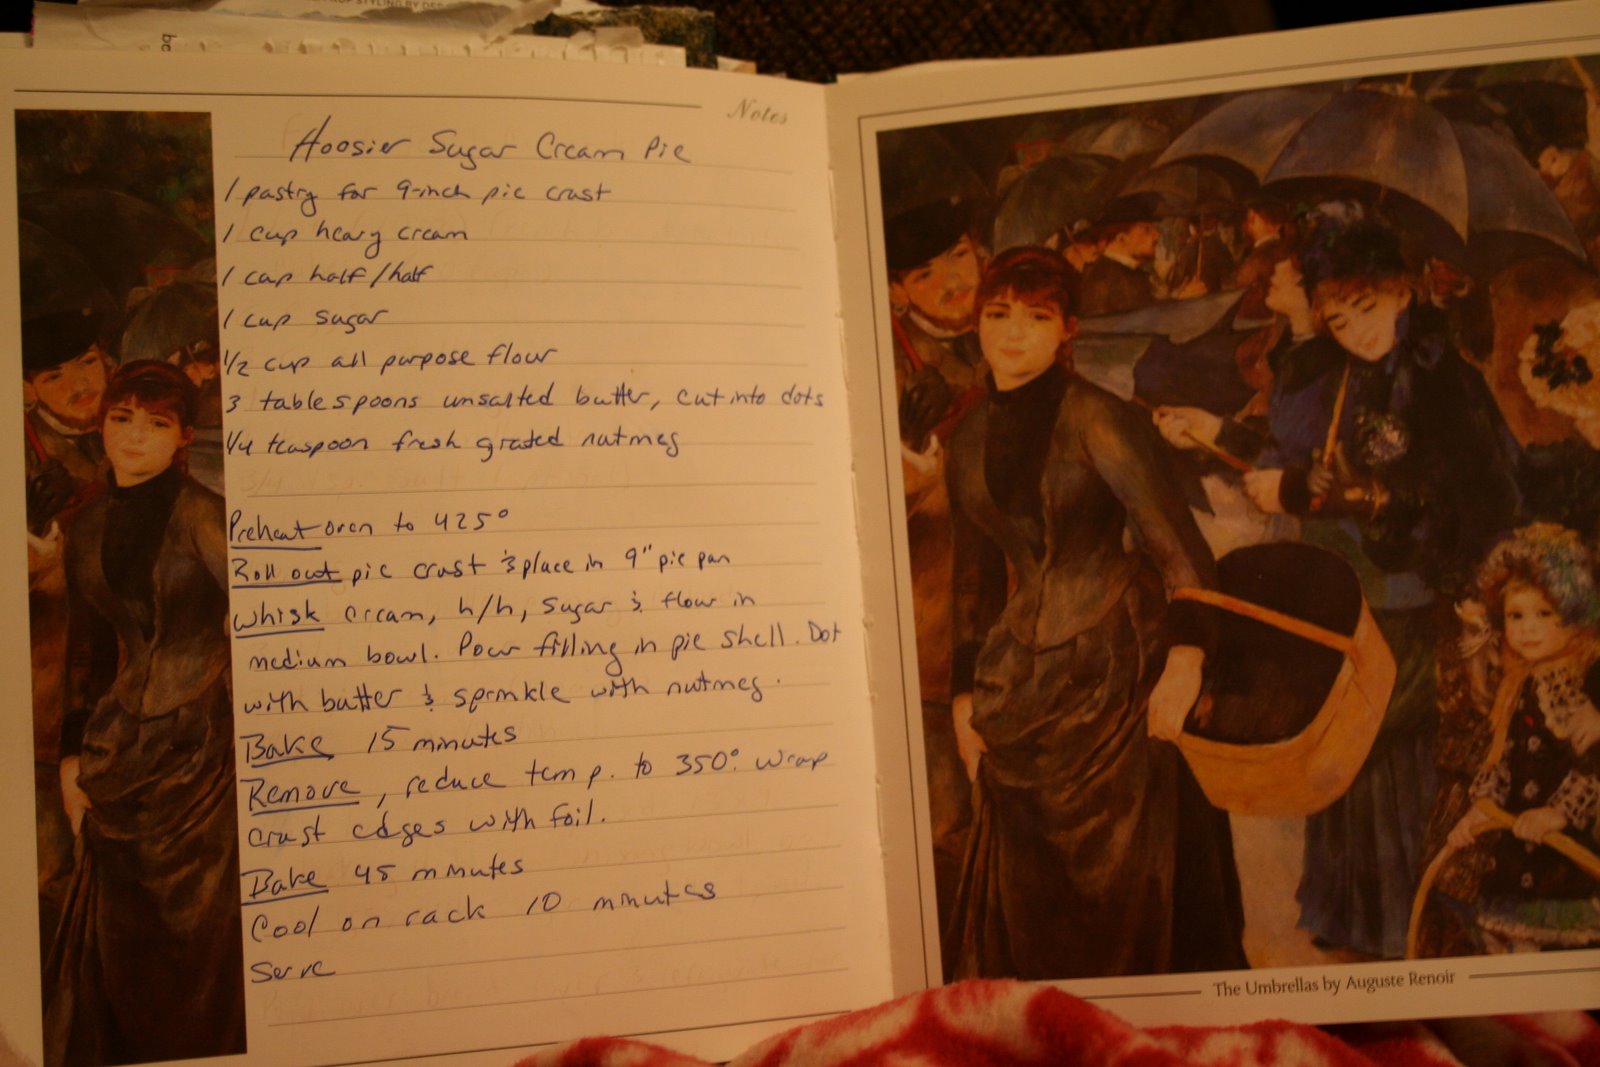 STYLING BY
be
Notes
Hoosier Sugar Cream Pie
1 pastry for 9-inch pie crust
1 cup heavy cream
1 cup half/half
1 cup sugar
1/2 cup all purpose flour
3 tablespoons unsalted butter, cut into dots
1/4 teaspoon fresh grated nutmeg
Preheat oven to 425°
Roll out pie crust & place in 9" pie pan
Whisk cream, h/h, sugar & flour in
medium bowl. Pour filling in pie shell. Dot
with butter & sprinkle with nutmeg.
Bake 15 minutes
Remove, reduce temp. to 350°. Wrap
crust edges with foil.
Bake 45 minutes
Cool on rack 10 minutes
Serve
The Umbrellas by Auguste Renoir